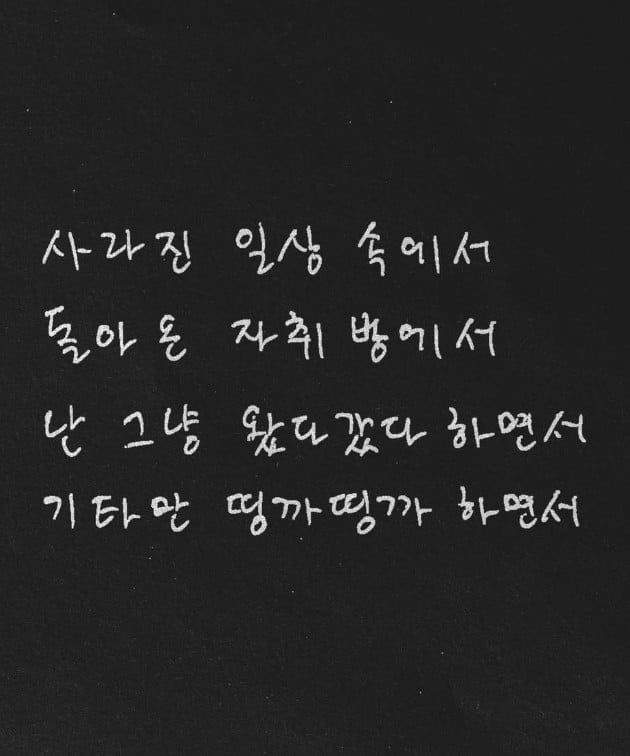 사라진 일상 속에서
돌아온 자취 방에서
난 그냥 왔다갔다 하면서
기타만 띵까띵까 하면서